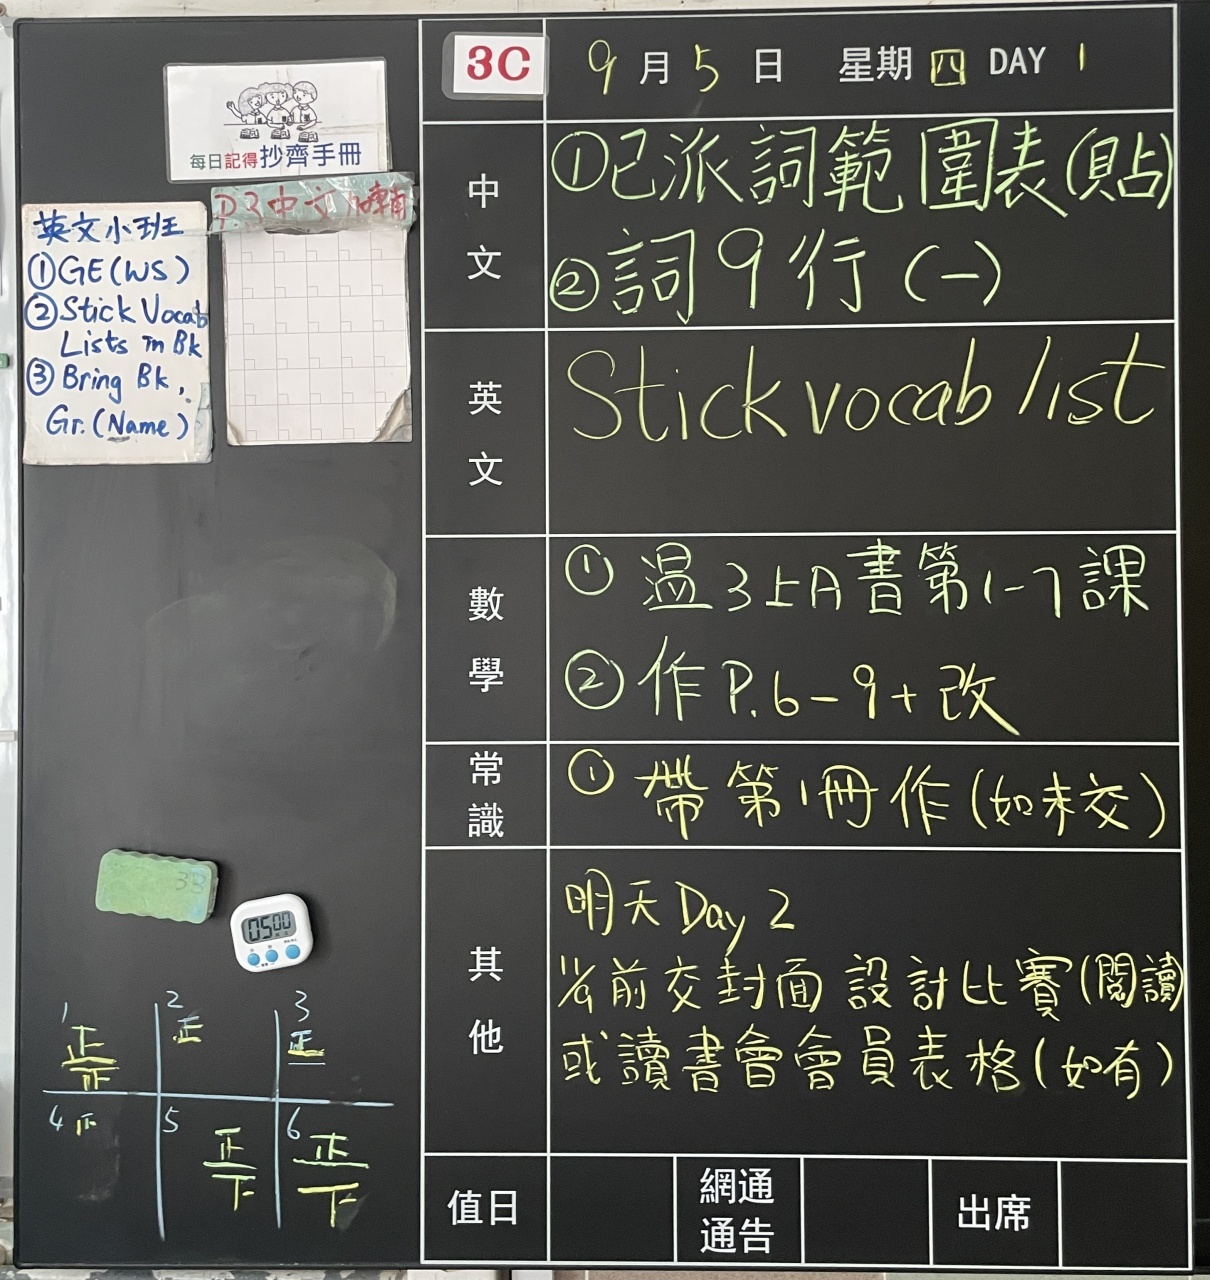 3C
9月5日 星期四 DAY 1
每日記得抄齊手冊
P.3中文 輔
英文小班
①GE(WS)
②Stick Vocab
Lists in Bk
③Bring Bk,
Gr.(Name)
中文
①已派詞範圍表(貼)
②詞9行(一)
英文
Stick vocab list
數學
①溫3上A書第1-7課
②作P.6-9+改
常識
①帶第1冊作(如未交)
其他
明天Day 2
前交封面設計比賽(閱讀)
或讀書會會員表格(如有)
3B
05 00
1 正正
2 正
3 正
4 正
5 正下
6 正下
值日
網通通告
出席